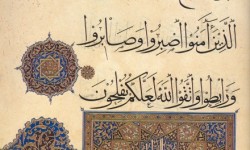 الَّذِينَ آمَنُوا اصْبِرُوا وَصَابِرُوا
وَرَابِطُوا وَاتَّقُوا اللَّهَ لَعَلَّكُمْ تُفْلِحُونَ